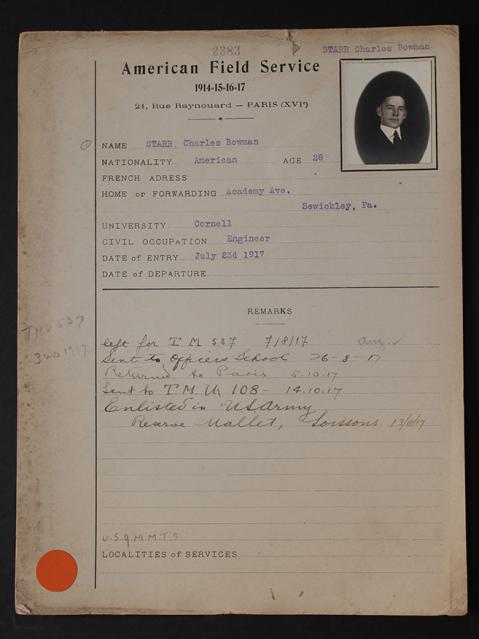 2383
STARR Charles Bowman
American Field Service
1914-15-16-17
21, Rue Raynouard — PARIS (XVIe)
NAME STARR, Charles Bowman
NATIONALITY American AGE 28
FRENCH ADRESS
HOME or FORWARDING Academy Ave.
Sewickley, Pa.
UNIVERSITY Cornell
CIVIL OCCUPATION Engineer
DATE of ENTRY July 23d 1917
DATE of DEPARTURE
REMARKS
left for T M 537 7/8/17 Aug.
Sent to Officers School 26-8-17
Returned to Paris 5.10.17
Sent to T.M.U. 108- 14.10.17
Enlisted in US Army
Reserve Mallet, Soissons
TMU 537
U.S.Q.M.M.T.S
LOCALITIES of SERVICES